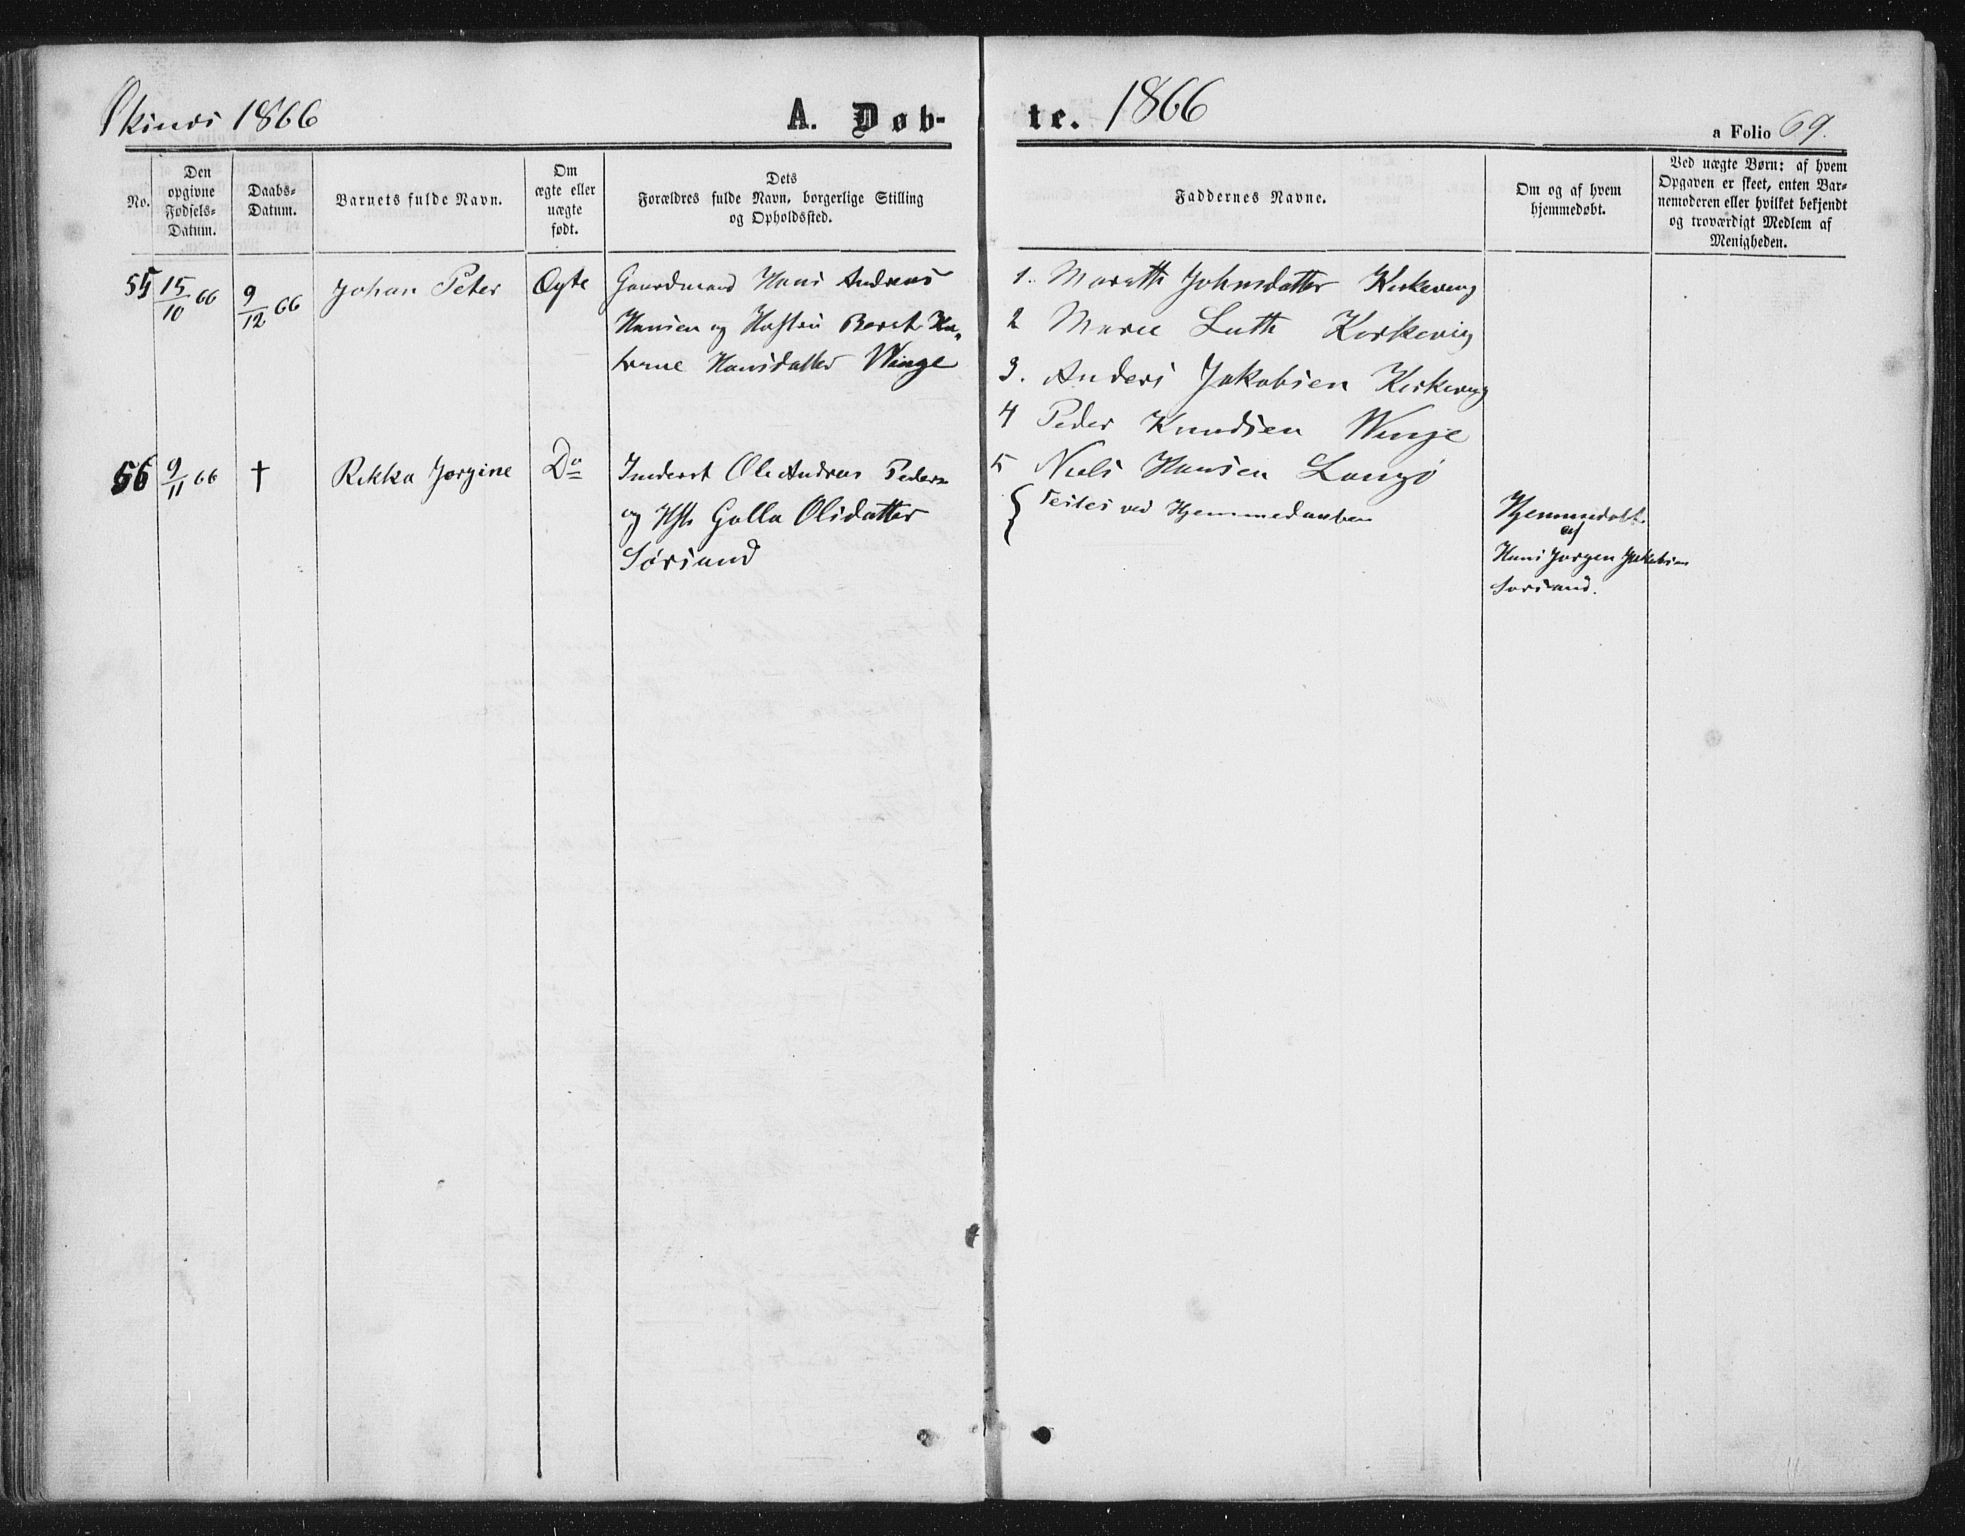 Øksnes 1866
A. Døb-
te.
1866
a Folio 69.
No.
Den
opgivne
Fødsels-
Datum.
Daabs-
Datum.
Barnets fulde Navn.
Om
ægte eller
uægte
født.
Dets
Forældres fulde Navn, borgerlige Stilling
og Opholdssted.
Faddernes Navne.
Om og af hvem
hjemmedøbt.
Ved uægte Børn: af hvem
Opgaven er skeet, enten Bar-
nemoderen eller hvilket bekjendt
og troværdigt Medlem af
Menigheden.
55
15/10 66
9/12 66
Johan Peter
Ægte
Gaardmand Hans Andreas
Hansen og Hustru Beret Ka-
trine Hansdatter Winge
1. Mareth Johnsdatter Kirkevaag
2 Maren Kirkevaag
3. Anders Jakobsen Kirkevaag
4 Peder Knudsen Winje
5 Niels Hansen Langø
56
9/11 66
†
Rikka Jørgine
Do
Inderst Ole Andreas Peders.
og Hst. Golla Olsdatter
Sørsand
{ Testes ved Hjemmedaaben
Hjemmedøbt
af
Hans Jørgen Jakobsen
Sørsand.